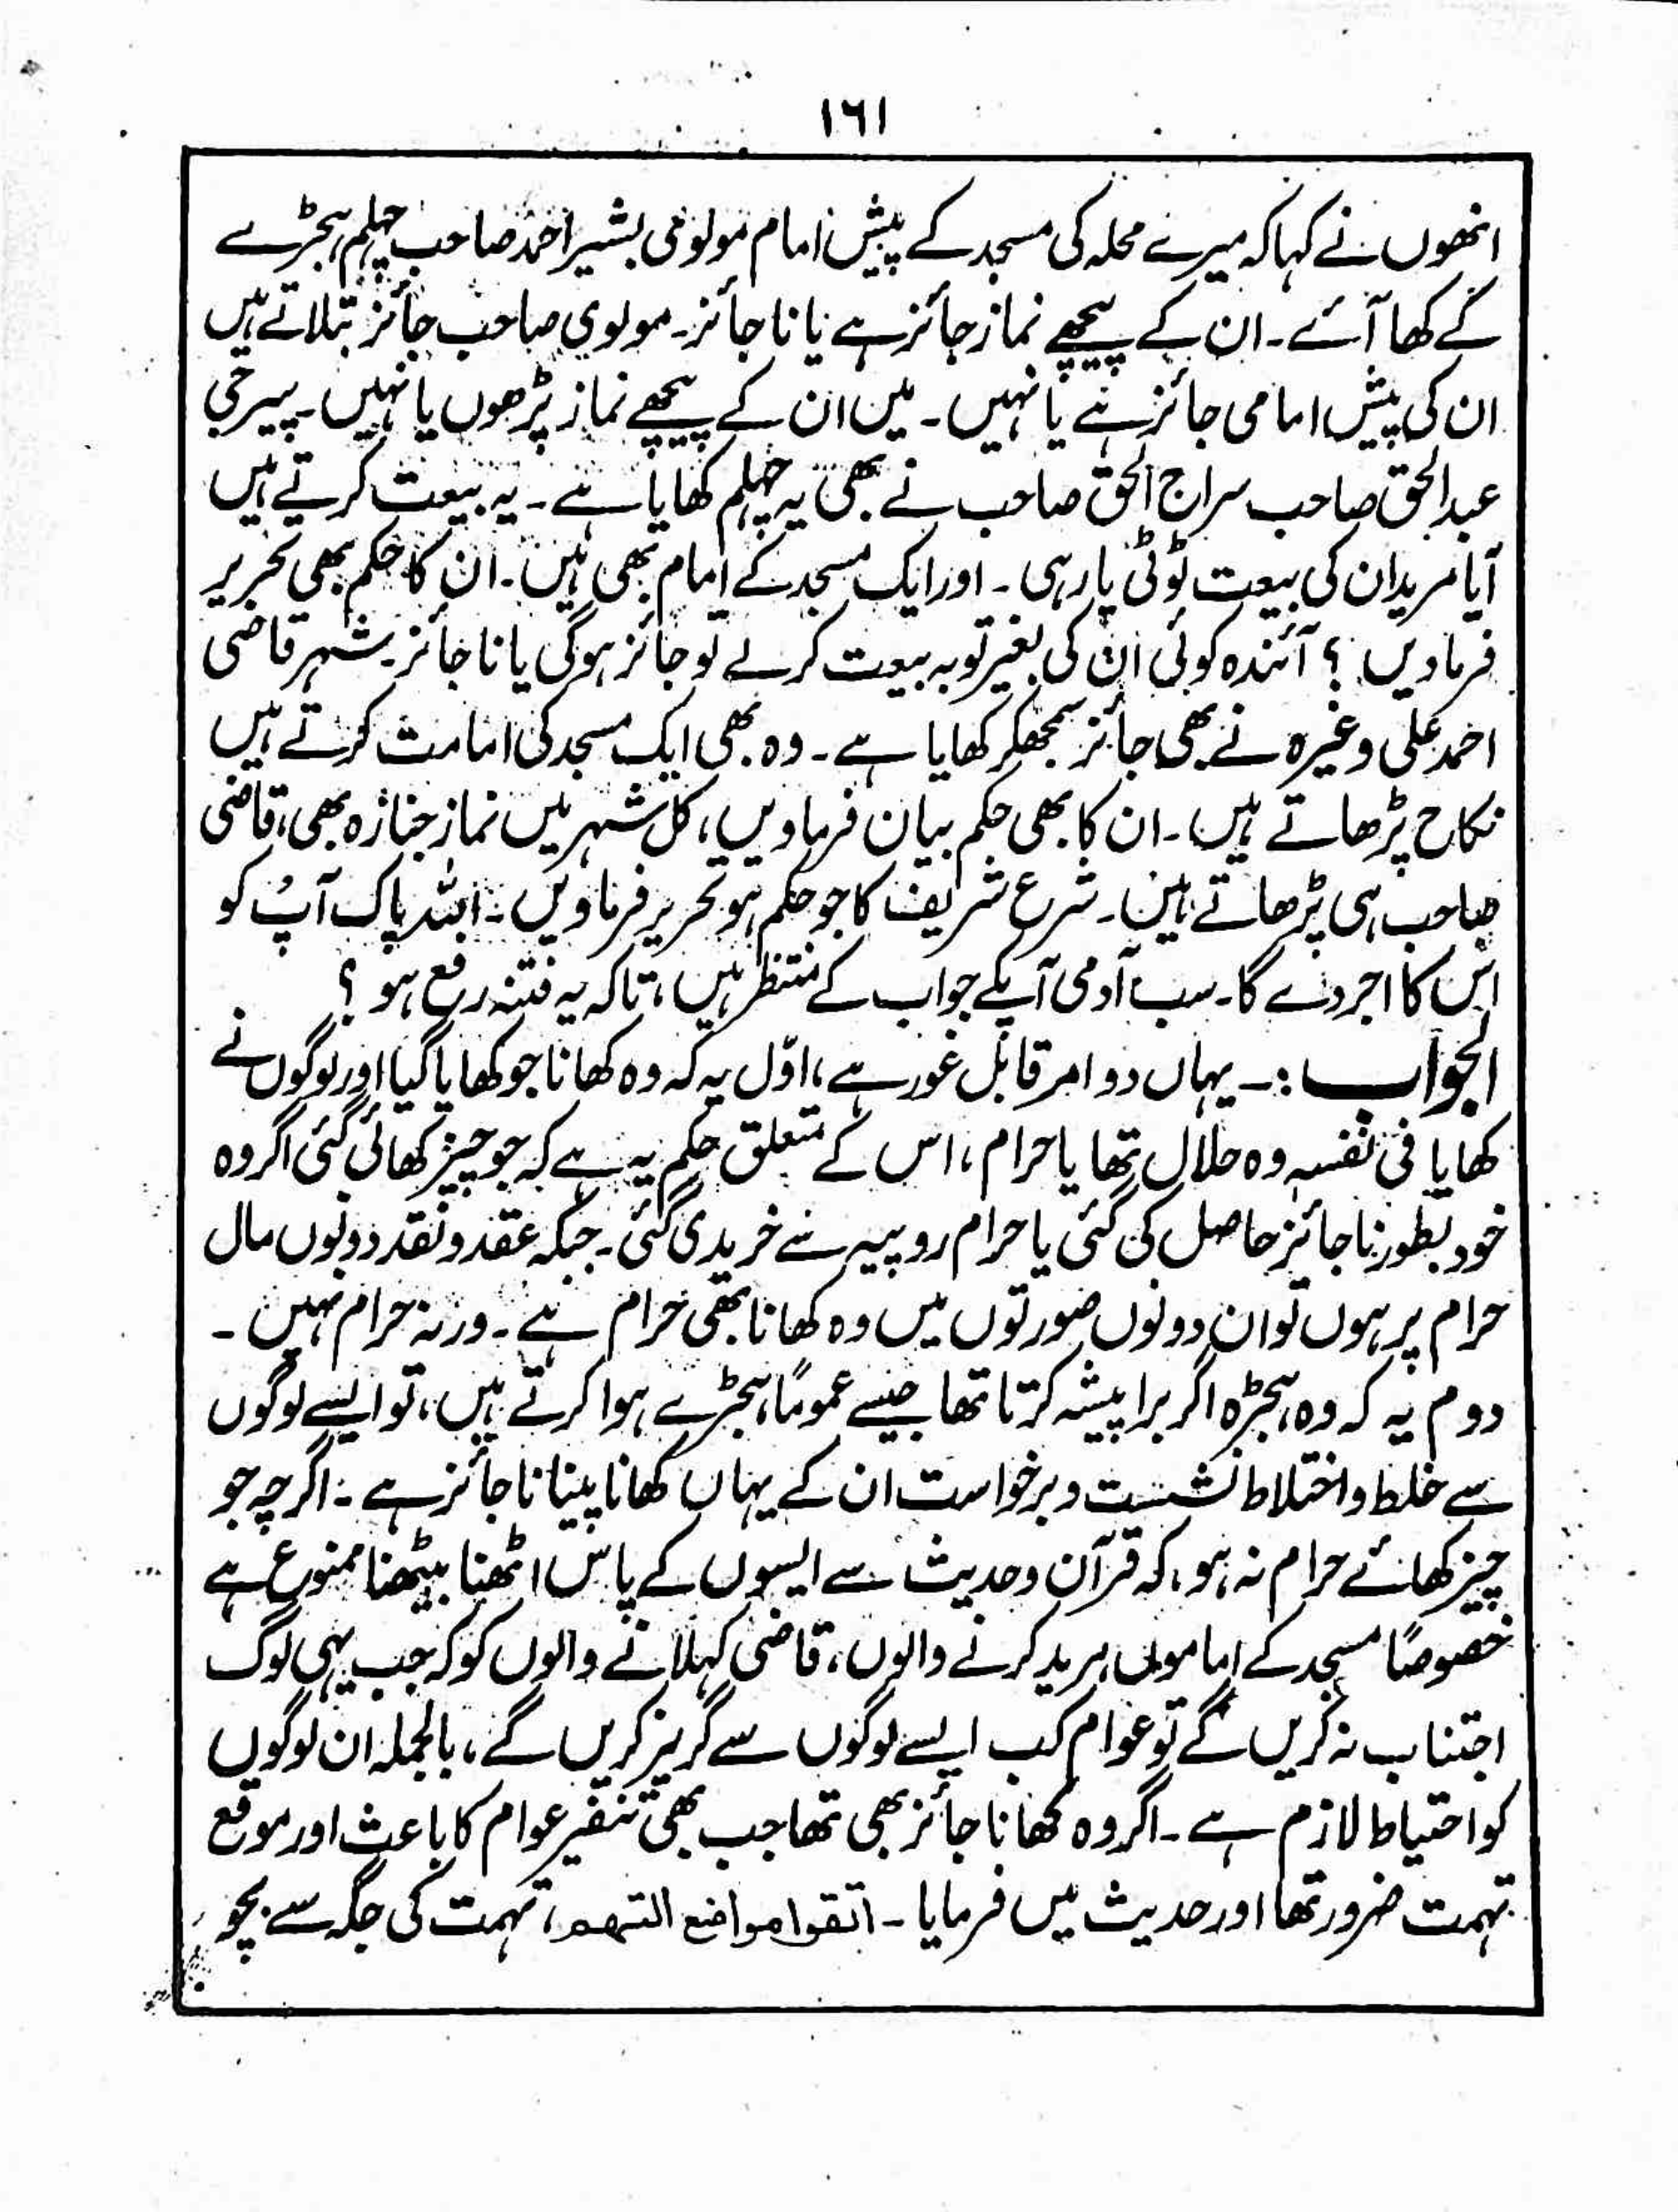 ۱۶۱
انھوں نے کہا کہ میرے محلہ کی مسجد کے پیش امام مولوی بشیر احمد صاحب چہلم ہجڑے
کے کھا آئے۔ ان کے پیچھے نماز جائز ہے یا ناجائز۔ مولوی صاحب جائز بتلاتے ہیں
ان کی پیش امامی جائز ہے یا نہیں۔ میں ان کے پیچھے نماز پڑھوں یا نہیں۔ پیر جی
عبدالحق صاحب سراج الحق صاحب نے بھی یہ چہلم کھایا ہے۔ یہ بیعت کرتے ہیں
آیا مریدان کی بیعت ٹوٹی یا رہی۔ اور ایک مسجد کے امام بھی ہیں۔ ان کا حکم بھی تحریر
فرمادیں؟ آئندہ کوئی ان کی بغیر توبہ بیعت کرلے تو جائز ہوگی یا ناجائز۔ شہر قاضی
احمد علی وغیرہ نے بھی جائز سمجھکر کھایا ہے۔ وہ بھی ایک مسجد کی امامت کرتے ہیں
نکاح پڑھاتے ہیں۔ ان کا بھی حکم بیان فرمادیں، کل شہر میں نماز جنازہ بھی، قاضی
صاحب ہی پڑھاتے ہیں۔ شرع شریف کا جو حکم ہو تحریر فرماویں۔ اللہ پاک آپ کو
اس کا اجر دے گا۔ سب آدمی آپکے جواب کے منتظر ہیں، تاکہ یہ فتنہ رفع ہو؟
الجواب :۔ یہاں دو امر قابل غور ہے، اوّل یہ کہ وہ کھانا جو کھایا گیا اور لوگوں نے
کھایا فی نفسہ وہ حلال تھا یا حرام، اس کے متعلق حکم یہ ہے کہ جو چیز کھائی گئی اگر وہ
خود بطور ناجائز حاصل کی گئی یا حرام روپیہ سے خریدی گئی۔ جبکہ عقد و نقد دونوں مال
حرام پر ہوں تو ان دونوں صورتوں میں وہ کھانا بھی حرام ہے۔ ورنہ حرام نہیں۔
دوم یہ کہ وہ ہجڑہ اگر برا پیشہ کرتا تھا جیسے عموماً ہجڑے ہوا کرتے ہیں، تو ایسے لوگوں
سے خلط و اختلاط نشست و برخواست ان کے یہاں کھانا پینا ناجائز ہے۔ اگرچہ جو
چیز کھائے حرام نہ ہو، کہ قرآن و حدیث سے ایسوں کے پاس اٹھنا بیٹھنا ممنوع ہے
خصوصًا مسجد کے اماموں مرید کرنے والوں، قاضی کہلانے والوں کو کہ جب یہی لوگ
اجتناب نہ کریں گے تو عوام کب ایسے لوگوں سے گریز کریں گے، بالجملہ ان لوگوں
کو احتیاط لازم ہے۔ اگر وہ کھانا جائز بھی تھا جب بھی تنفیر عوام کا باعث اور موقع
تہمت ضرور تھا اور حدیث میں فرمایا۔ اتقوا مواضع التهم، تہمت کی جگہ سے بچو